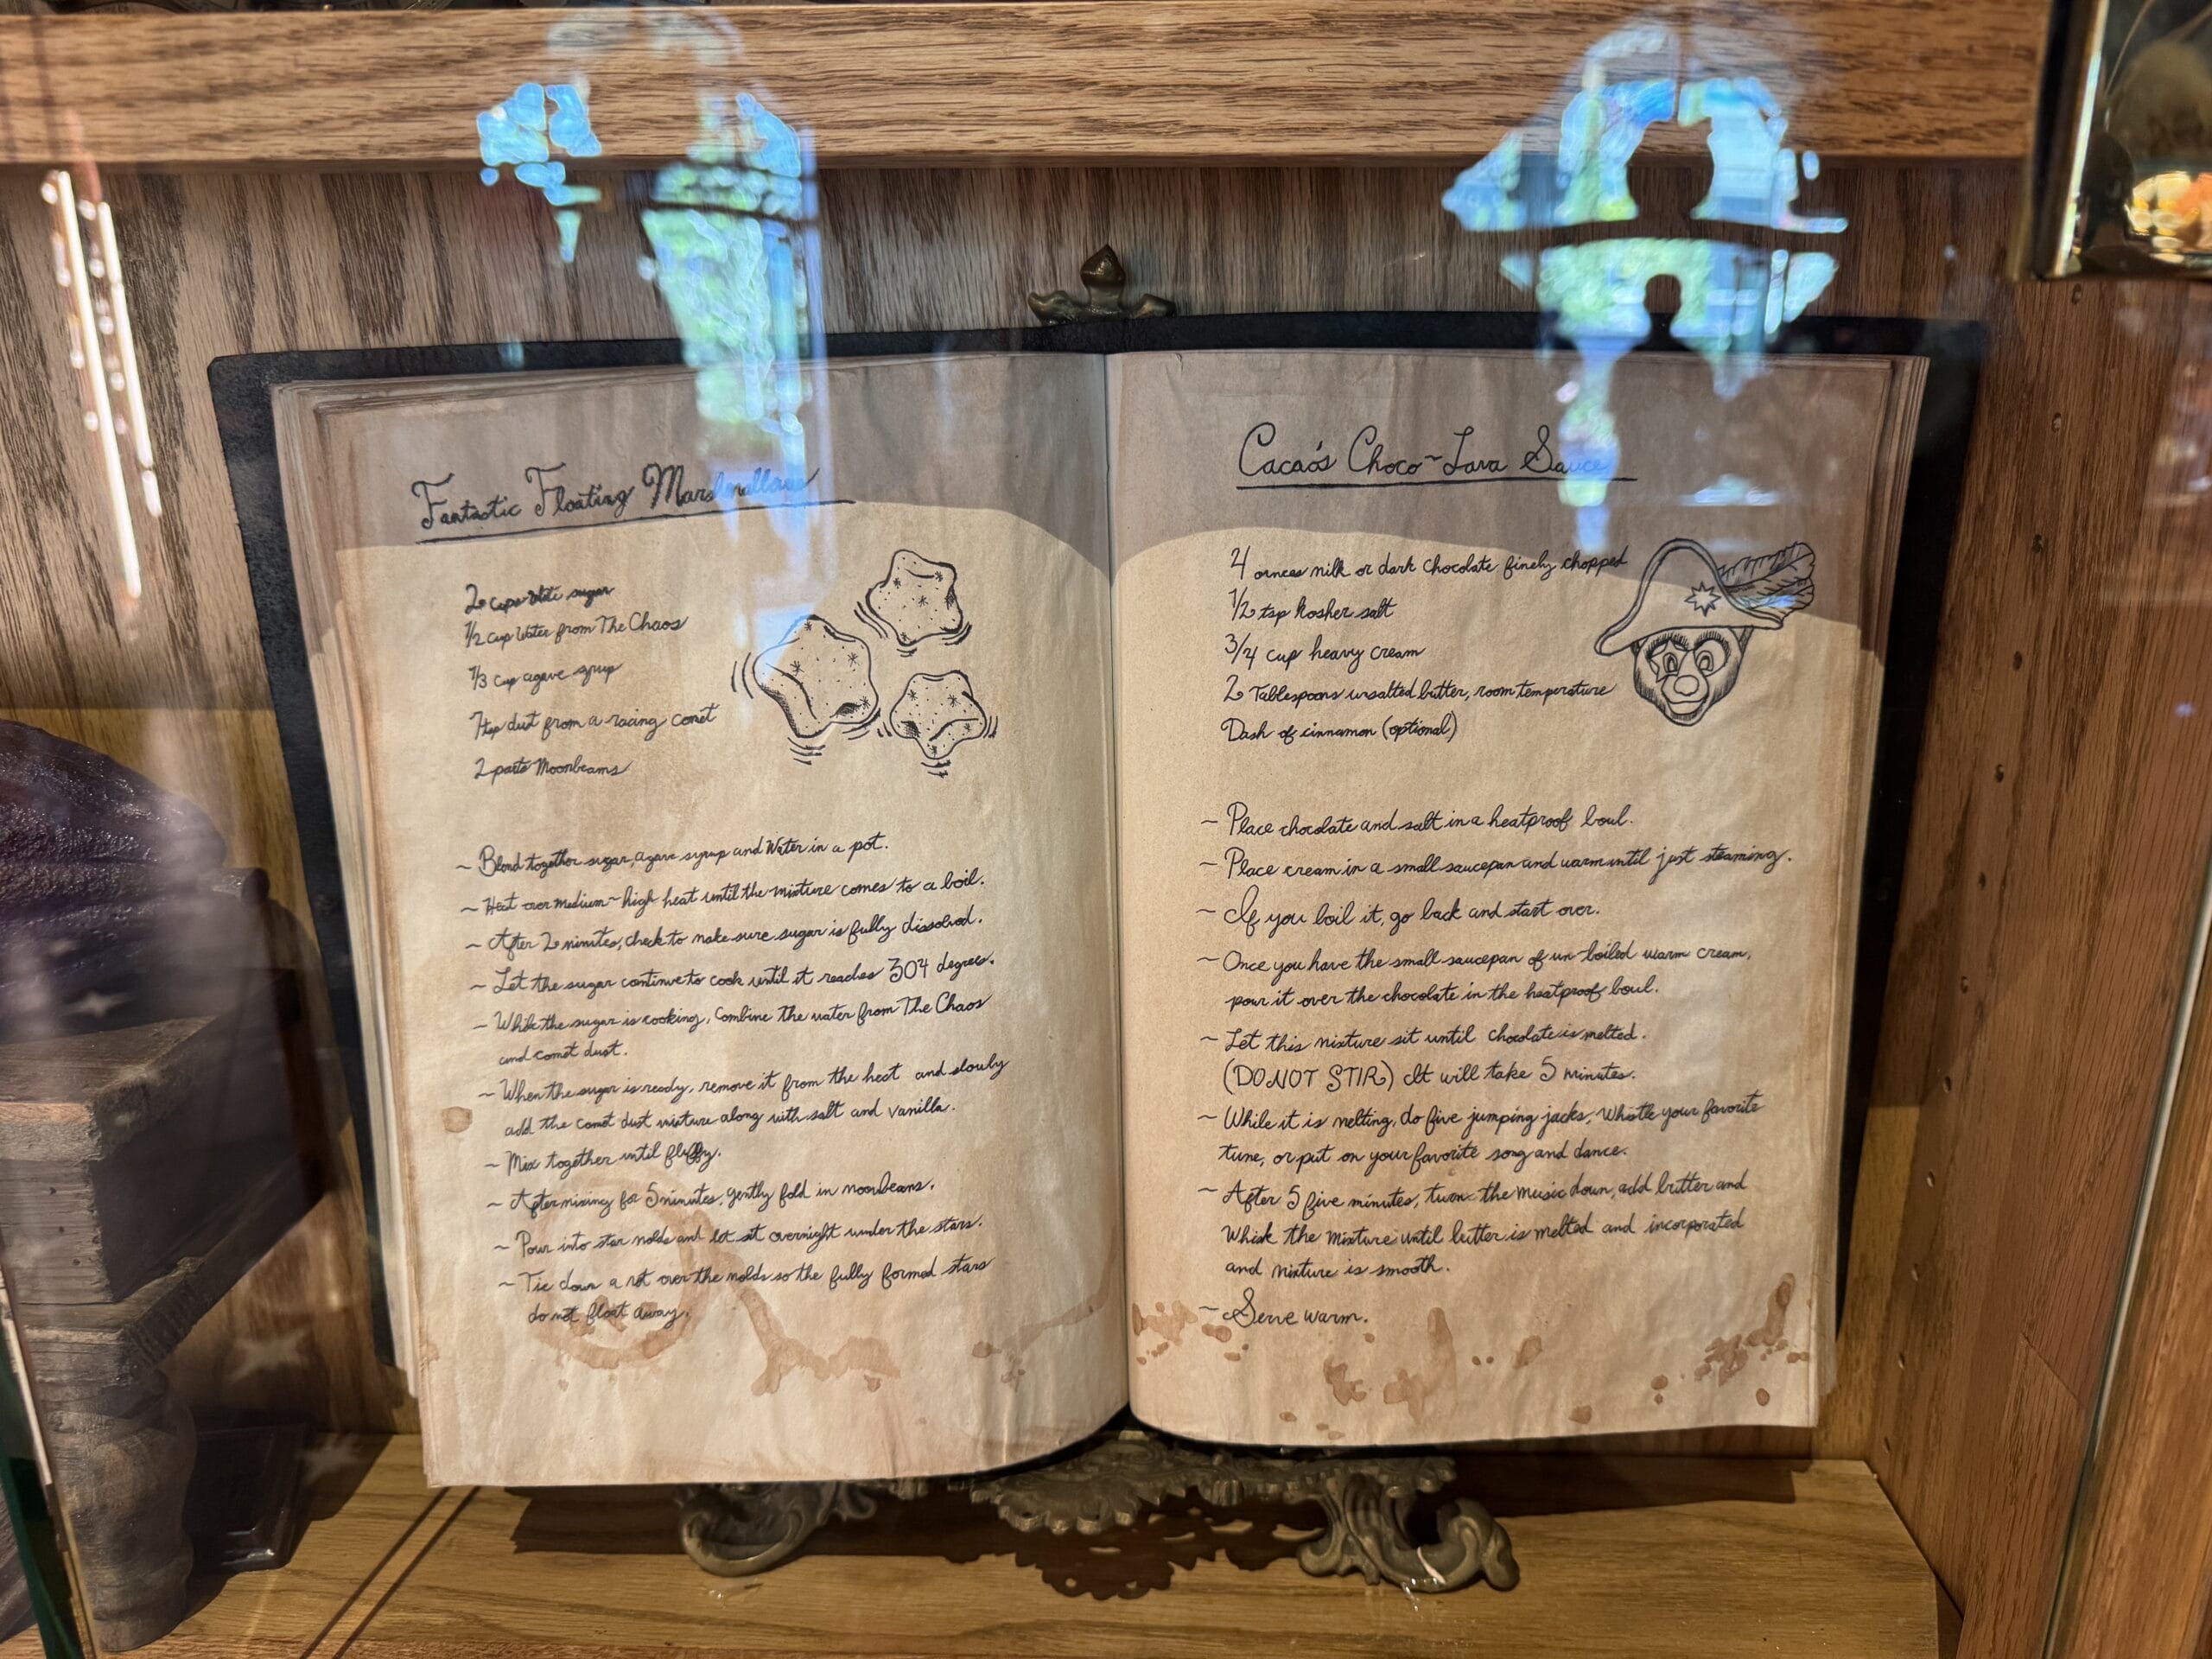 Fantastic Floating Marshmallows
2 cups white sugar
1/2 cup Water from The Chaos
1/3 cup agave syrup
1 tsp dust from a racing comet
2 parts Moonbeams
~ Blend together sugar, agave syrup and Water in a pot.
~ Heat over medium-high heat until the mixture comes to a boil.
~ After 2 minutes, check to make sure sugar is fully dissolved.
~ Let the sugar continue to cook until it reaches 304 degrees.
~ While the sugar is cooking, combine the water from The Chaos
and comet dust.
~ When the sugar is ready, remove it from the heat and slowly
add the comet dust mixture along with salt and vanilla.
~ Mix together until fluffy.
~ After mixing for 5 minutes, gently fold in moonbeams.
~ Pour into star molds and let sit overnight under the stars.
~ Tie down a net over the molds so the fully formed stars
do not float away.
Cacao's Choco~Lava Sauce
4 ounces milk or dark chocolate finely chopped
1/2 tsp kosher salt
3/4 cup heavy cream
2 Tablespoons unsalted butter, room temperature
Dash of cinnamon (optional)
~ Place chocolate and salt in a heatproof bowl.
~ Place cream in a small saucepan and warm until just steaming.
~ If you boil it, go back and start over.
~ Once you have the small saucepan of un-boiled warm cream,
pour it over the chocolate in the heatproof bowl.
~ Let this mixture sit until chocolate is melted.
(DO NOT STIR) It will take 5 minutes.
~ While it is melting, do five jumping jacks, Whistle your favorite
tune, or put on your favorite song and dance.
~ After 5 five minutes, turn the music down, add butter and
Whisk the mixture until butter is melted and incorporated
and mixture is smooth.
~ Serve warm.